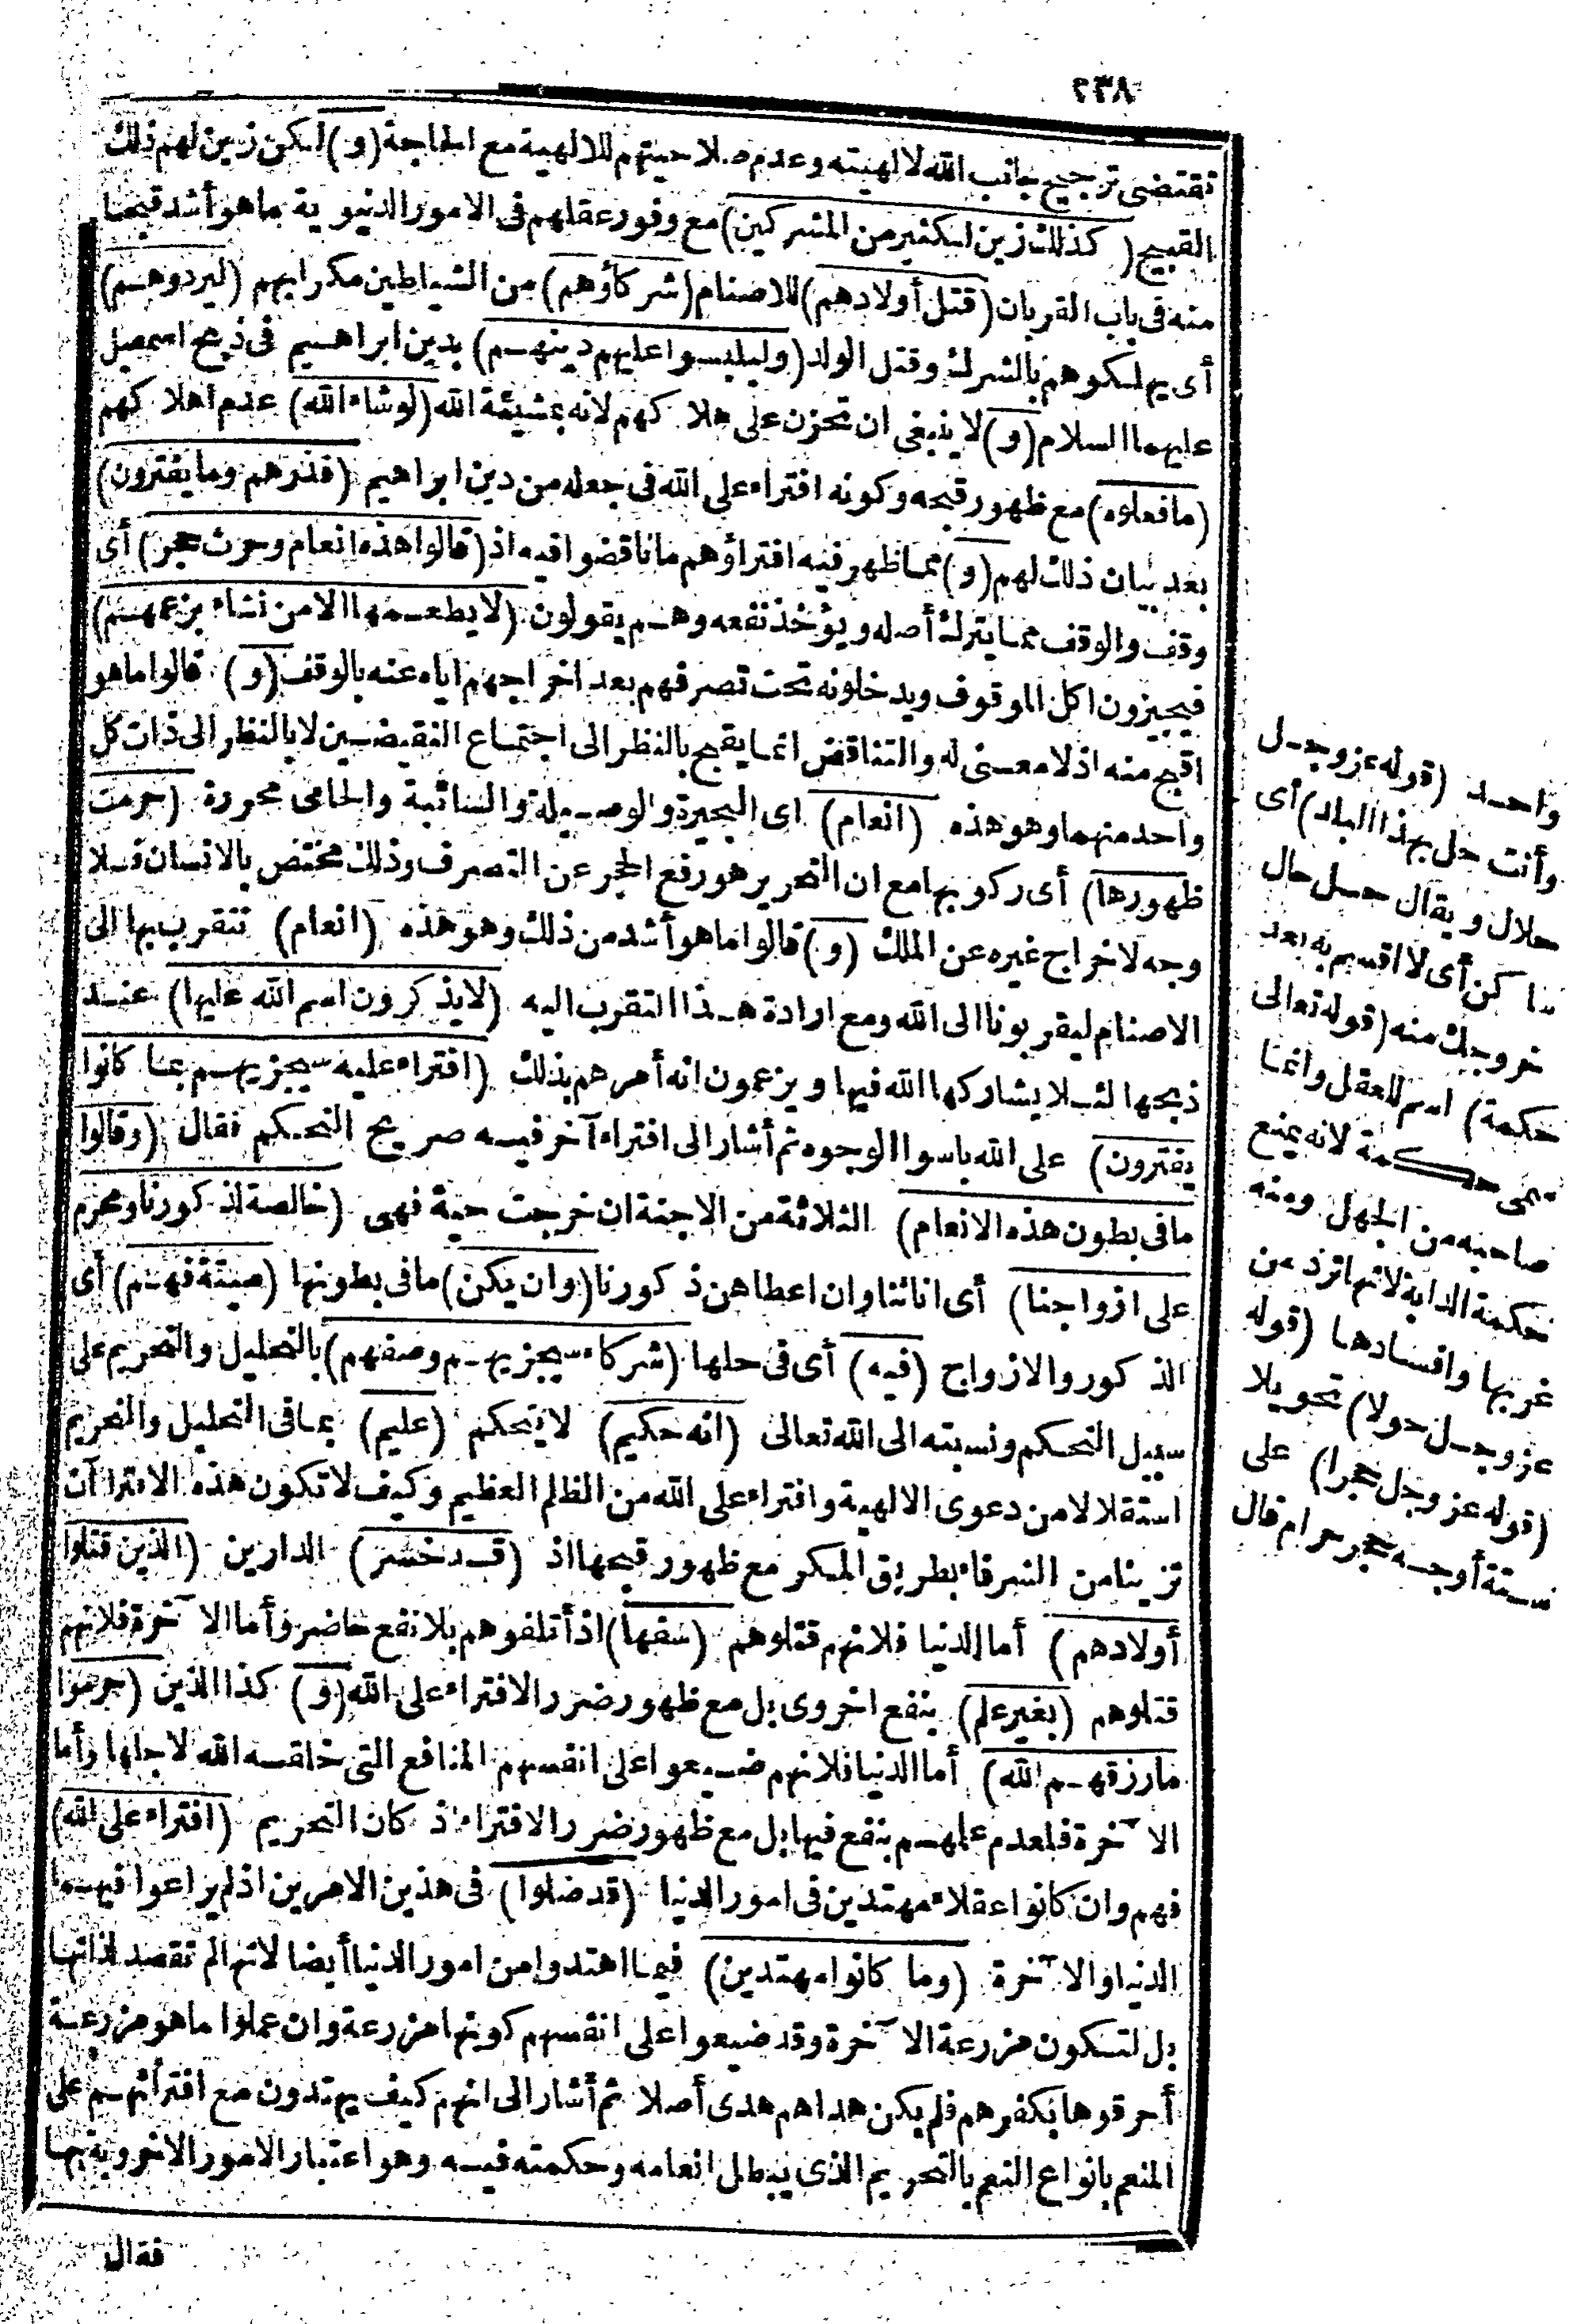 ٢٣٨
تقتضى ترجيح جانب الله لالهيته وعدم صلاحيتهم للالهية مع الحاجة (و) لكن زين لهم ذلك
القبيح (كذلك زين لكثير من المشركين) مع وفور عقلهم فى الامور الدنيوية ما هو أشد قبحا
منه فى باب القربان (قتل أولادهم) للاصنام (شركاؤهم) من الشياطين مكرا بهم (ليردوهم)
أى يهلكوهم بالشرك وقتل الولد (وليلبسوا عليهم دينهم) بدين ابراهيم فى ذبح اسمعيل
عليهما السلام (و) لا ينبغى ان تحزن على هلاكهم لانه بمشيئة الله (لو شاء الله) عدم اهلاكهم
(ما فعلوه) مع ظهور قبحه وكونه افتراء على الله فى جعله من دين ابراهيم (فذرهم وما يفترون)
بعد بيان ذلك لهم (و) مما ظهر فيه افتراؤهم ما ناقضوا فيه اذ (قالوا هذه انعام وحرث حجر) أى
وقف والوقف مما يترك أصله ويؤخذ نفعه وهم يقولون (لا يطعمها الا من نشاء بزعمهم)
فيجيزون اكل الموقوف ويدخلونه تحت تصرفهم بعد اخراجهم اياه عنه بالوقف (و) قالوا ما هو
اقبح منه اذ لا معنى له والتناقض انما يقبح بالنظر الى اجتماع النقيضين لا بالنظر الى ذات كل
واحد منهما وهو هذه (انعام) اى البحيرة والوصيلة والسائبة والحامى محررة (حرمت
ظهورها) أى ركوبها مع ان التحرير هو رفع الحجر عن التصرف وذلك مختص بالانسان فلا
وجه لاخراج غيره عن الملك (و) قالوا ما هو أشد من ذلك وهو هذه (انعام) نتقرب بها الى
الاصنام ليقربونا الى الله ومع ارادة هذا التقرب اليه (لا يذكرون اسم الله عليها) عند
ذبحها لئلا يشاركها الله فيها ويزعمون انه أمرهم بذلك (افتراء عليه سيجزيهم بما كانوا
يفترون) على الله باسوا الوجوه ثم أشار الى افتراء آخر فيه صريح التحكم فقال (وقالوا
ما فى بطون هذه الانعام) الثلاثة من الاجنة ان خرجت حية فهى (خالصة لذكورنا ومحرم
على ازواجنا) أى اناثنا وان اعطاهن ذكورنا (وان يكن) ما فى بطونها (ميتة فهم) أى
الذكور والازواج (فيه) أى فى حلها (شركاء سيجزيهم وصفهم) بالتحليل والتحريم على
سبيل التحكم ونسبته الى الله تعالى (انه حكيم) لا يتحكم (عليم) بما فى التحليل والتحريم
استقلالا من دعوى الالهية وافتراء على الله من الظلم العظيم وكيف لا تكون هذه الافترا آت
تزيينا من الشرفاء بطريق المكر مع ظهور قبحها اذ (قد خسر) الدارين (الذين قتلوا
أولادهم) أما الدنيا فلانهم قتلوهم (سفها) اذ أتلفوهم بلا نفع حاضر وأما الا خرة فلانهم
قتلوهم (بغير علم) بنفع اخروى بل مع ظهور ضرر الافتراء على الله (و) كذا الذين (حرموا
ما رزقهم الله) أما الدنيا فلانهم ضيعوا على انفسهم المنافع التى خلقه الله لاجلها وأما
الا خرة فلعدم علمهم بنفع فيها بل مع ظهور ضرر الافتراء اذ كان التحريم (افتراء على الله)
فهم وان كانوا عقلاء مهتدين فى امور الدنيا (قد ضلوا) فى هذين الامرين اذ لم يراعوا فيهما
الدنيا والا خرة (وما كانوا مهتدين) فيما اهتدوا من امور الدنيا أيضا لانها لم تقصد لذاتها
بل لتكون مزرعة الا خرة وقد ضيعوا على انفسهم كونها مزرعة وان عملوا ما هو مزرعة
أحرقوها بكفرهم فلم يكن هداهم هدى أصلا ثم أشار الى انهم كيف يهتدون مع افترائهم على
المنعم بانواع النعم بالتحريم الذى يبطل انعامه وحكمته فيه وهو اعتبار الامور الاخروية بها
فقال
واحد (قوله عز وجل
وأنت حل بهذا البلد) أى
حلال ويقال حل حال
سا كن أى لا اقسم به بعد
خروجك منه (قوله تعالى
حكمة) اسم للعقل وانما
سمى حكمة لانه يمنع
صاحبه من الجهل ومنه
حكمة الدابة لانها ترد من
غربها وافسادها (قوله
عز وجل حولا) تحويلا
(قوله عز وجل حجرا) على
ستة أوجه حجر حرام قال